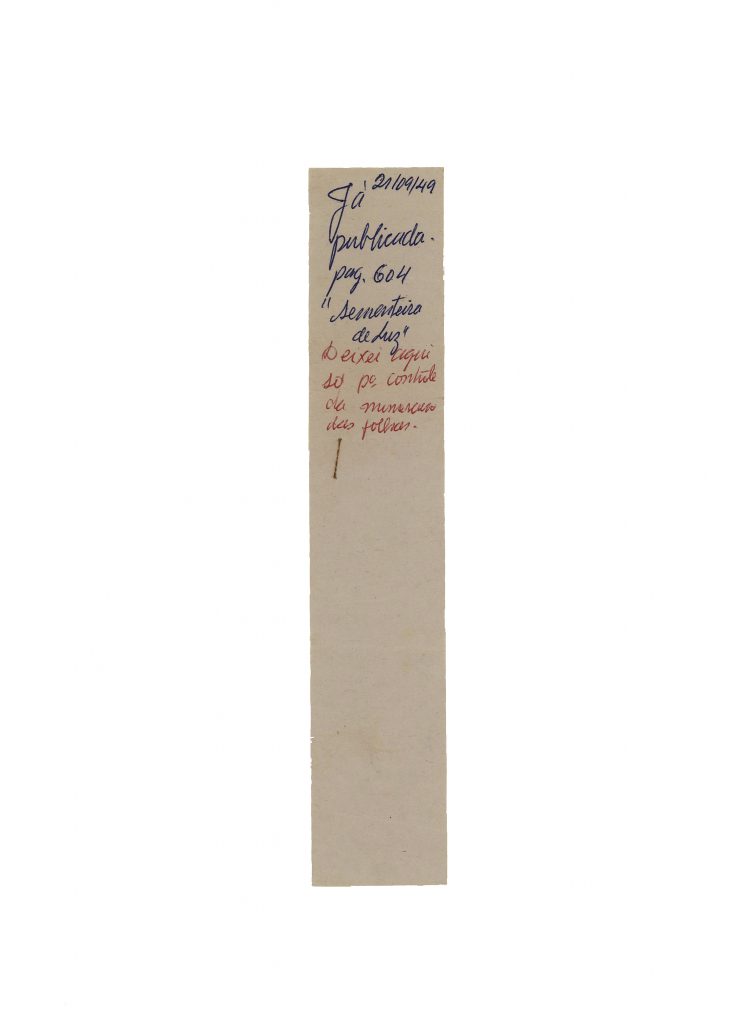 21/09/49
Já
publicada.
pag. 604
"Sementeira
de Luz"
Deixei aqui
só pª contrôle
da numeração
das folhas.